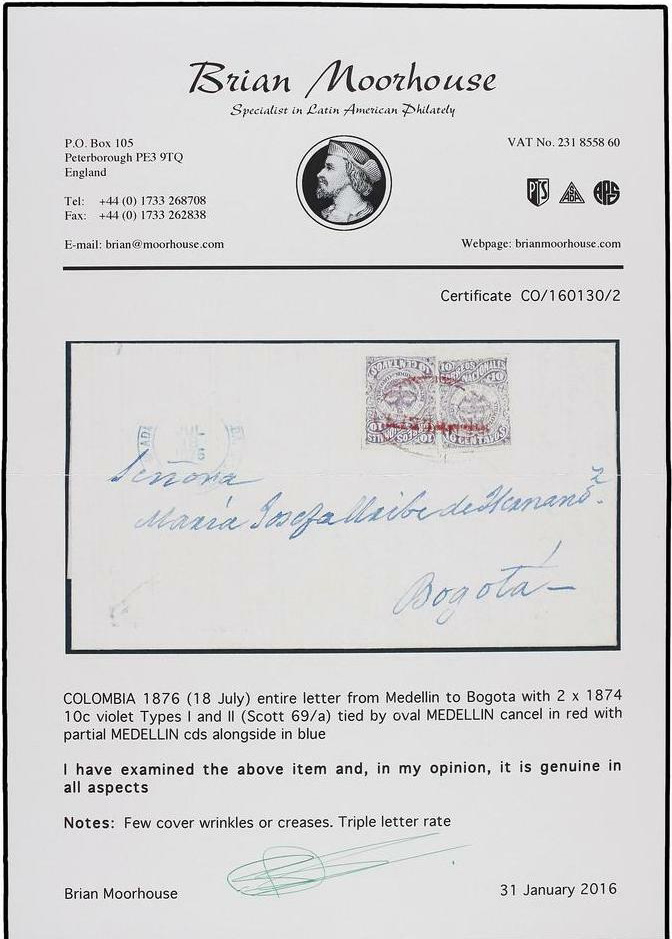 Brian Moorhouse
Specialist in Latin American Philately
P.O. Box 105
Peterborough PE3 9TQ
England
Tel: +44 (0) 1733 268708
Fax: +44 (0) 1733 262838
E-mail: brian@moorhouse.com
VAT No. 231 8558 60
PTS
ASDA
APS
Webpage: brianmoorhouse.com
Certificate CO/160130/2
Señora
María Josefa Uribe de
Bogotá
COLOMBIA 1876 (18 July) entire letter from Medellin to Bogota with 2 x 1874
10c violet Types I and II (Scott 69/a) tied by oval MEDELLIN cancel in red with
partial MEDELLIN cds alongside in blue
I have examined the above item and, in my opinion, it is genuine in
all aspects
Notes: Few cover wrinkles or creases. Triple letter rate
Brian Moorhouse
31 January 2016